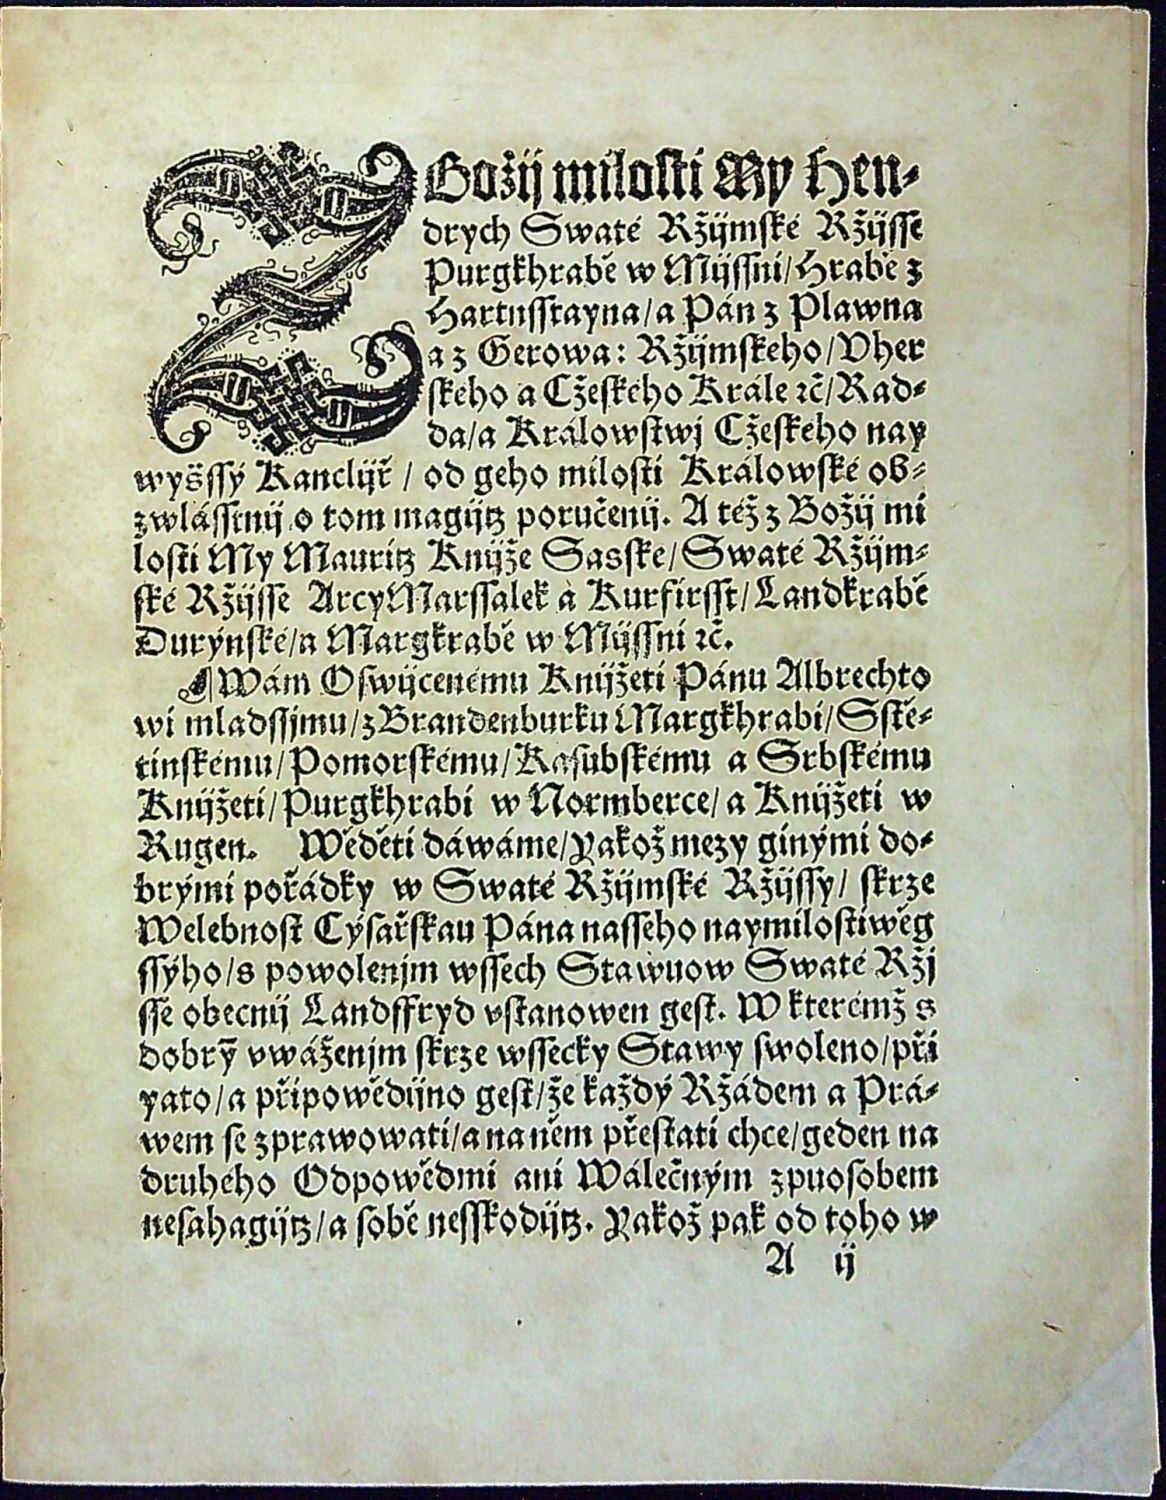 Z Božij milosti My Hen⸗
drych Swaté Ržijmské Ržijsse
Purgkhrabě w Mijssni/Hrabě z
Hartnsstayna/a Pán z Plawna
a z Gerowa: Ržijmskeho/Vher
skeho a Cžeskeho Krále ꝛč/Rad⸗
da/a Králowstwj Cžeskeho nay
wyšssý Kanclijř / od geho milosti Králowské ob⸗
zwlásstnij o tom magijtz poručenij. A též z Božij mi
losti My Mauritz Knijže Sasske/Swaté Ržijm⸗
ské Ržijsse ArcyMarssalek à Kurfirsst/Landkrabě
Durýnské/a Margkrabě w Mijssni ꝛč.
¶ Wám Oswijcenému Knijžeti Pánu Albrechto
wi mladssjmu/z Brandenburku Margkhrabi/Sstě⸗
tinskému/Pomorskému/Kasubskému a Srbskému
Knijžeti/Purgkhrabi w Normberce/a Knijžeti w
Rugen. Wěděti dáwáme/Yakož mezy ginými do⸗
brými pořádky w Swaté Ržijmské Ržijssy/ skrze
Welebnost Cýsařskau Pána nasseho naymilostiwěg
ssýho/s powolenjm wssech Stawuow Swaté Ržj
sse obecnij Landffryd vstanowen gest. W kterémž s
dobrỹ vwáženjm skrze wssecky Stawy swoleno/při
yato/a připowědijno gest/že každý Ržádem a Prá⸗
wem se zprawowati/a na něm přestati chce/geden na
druhého Odpowědmi ani Wálečným zpuosobem
nesahagijtz/a sobě nesskodijtz. Yakož pak od toho w
A ij